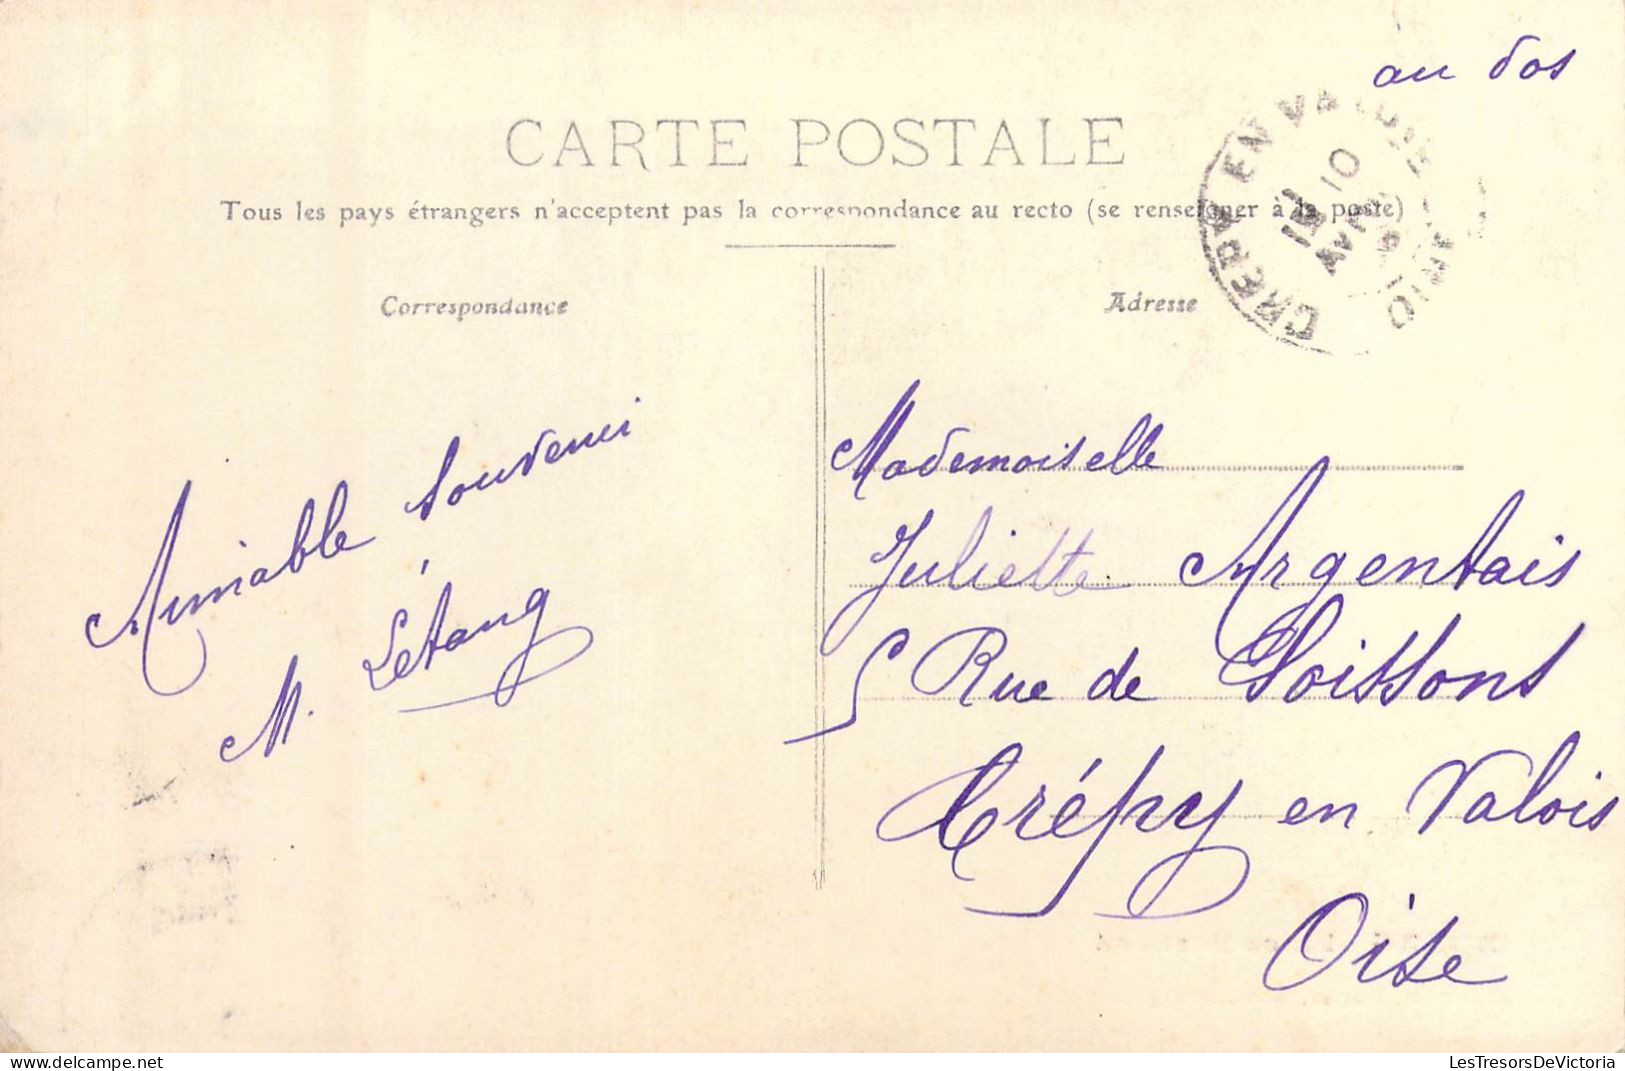 au dos
CARTE POSTALE
Tous les pays étrangers n'acceptent pas la correspondance au recto (se renseigner à la poste)
CRÉPY EN VALOIS
10
Correspondance
Adresse
Aimable Souvenir
M. Létang
Mademoiselle
Juliette Argentais
5 Rue de Soissons
Crépy en Valois
Oise
delcampe.net
LesTresorsDeVictoria